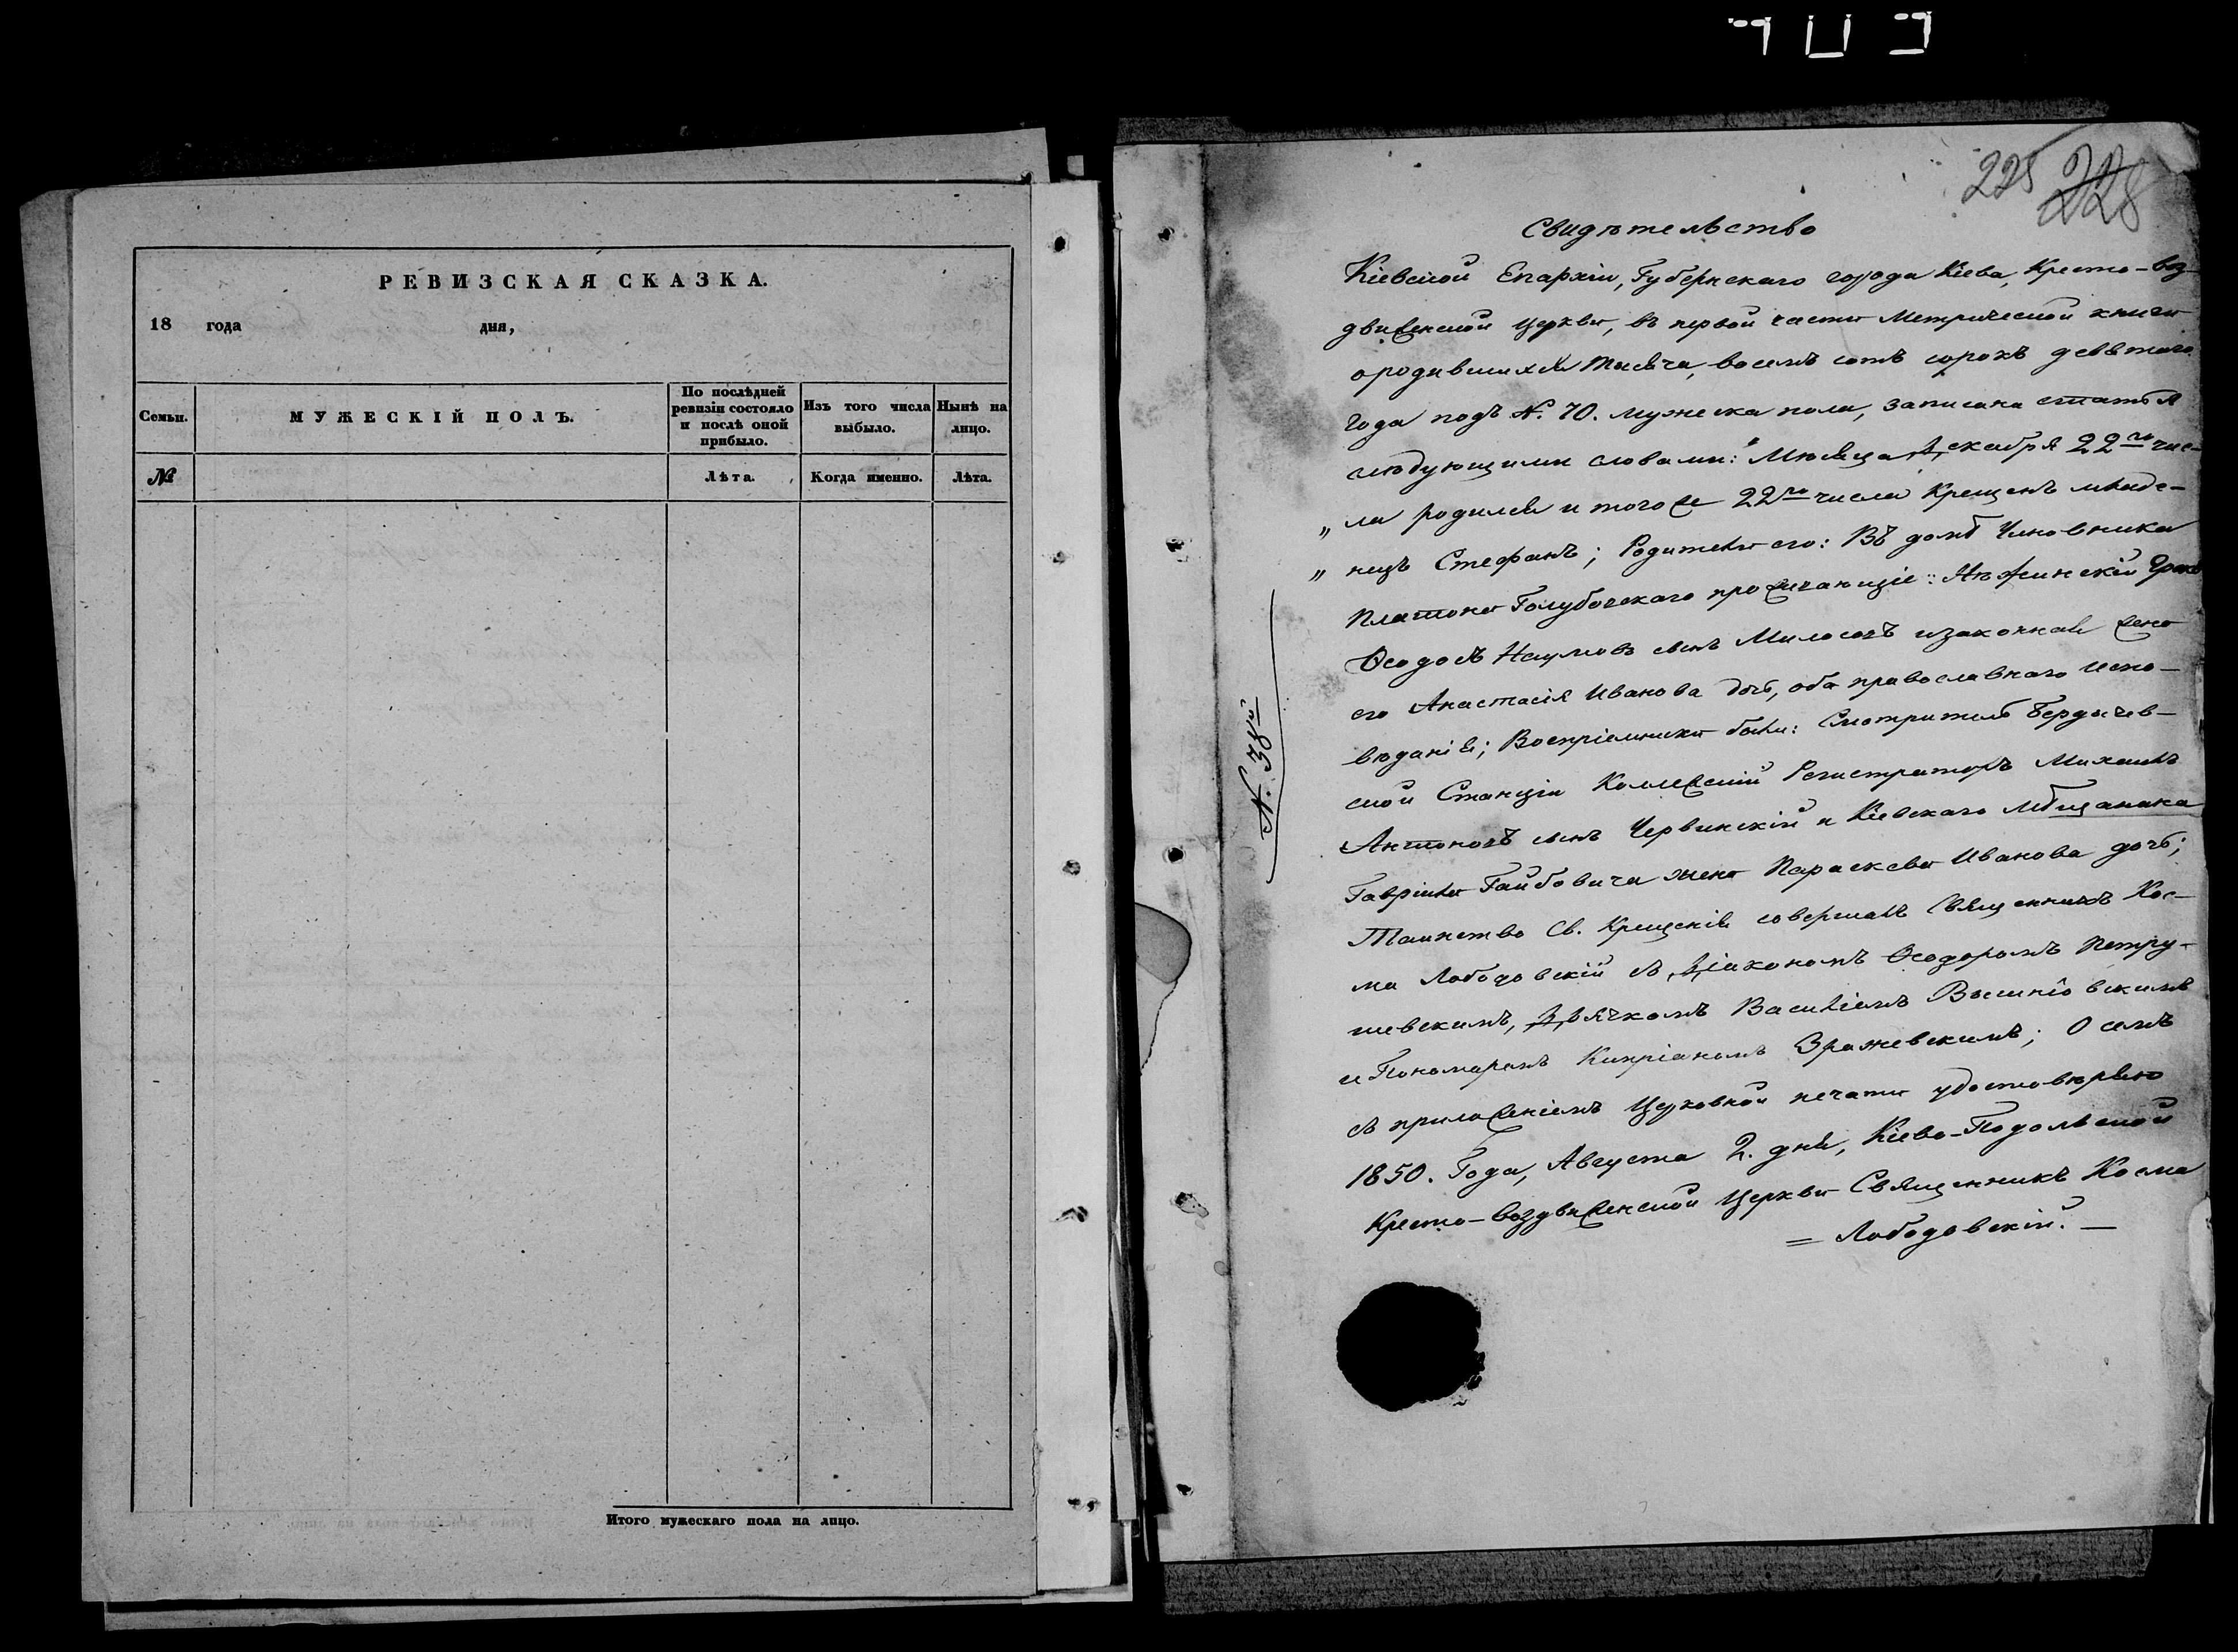 РЕВИЗСКАЯ СКАЗКА.
18 года дня,
Семьи.
МУЖЕСКІЙ ПОЛЪ.
По послѣдней
ревизіи состояло
и послѣ оной
прибыло.
Изъ того числа
выбыло.
Нынѣ на
лицо.
№
Лѣта.
Когда именно.
Лѣта.
Итого мужескаго пола на лицо.
225 228
Свидѣтельство
Кіевской Епархіи, Губернскаго города Кіева, Кресто-воз-
движенской Церкви, въ первой части Метрической книги
о родившихся тысяча, восемь сотъ сорокъ девятого
года подъ N. 70. мужеска пола, записана статья
слѣдующими словами: "Мѣсяца Декабря 22го чис-
„ ла родился и того же 22го числа крещенъ младе-
„ нецъ Стефанъ; Родители его: Въ домѣ Чиновника
Платона Голубовскаго прожичающіе: Нѣжинскій Грекъ
Ѳеодосъ Наумовъ сынъ Милосачъ и законная жена
его Анастасія Иванова дочь, оба православнаго испо-
вѣданія; Воспріемники были: Смотритель Бердичев-
ской Станціи Коллежскій Регистраторъ Михаилъ
Антоновъ сынъ Червинскій и Кіевскаго мѣщанина
Гавріила Гайбовича жена Параскева Иванова дочь;
Таинство Св. Крещенія совершалъ Священникъ Кос-
ма Лободовскій съ Діакономъ Ѳеодоромъ Петру-
шевскимъ, Дьячкомъ Василіемъ Вышніовскимъ
и Пономаремъ Кипріаномъ Зражевскимъ; О семъ
съ приложеніемъ Церковной печати удостовѣряю
1850. Года, Августа 2. дня, Кіево-Подольской
Кресто-воздвиженской Церкви Священникъ Косма
= Лободовскій. —